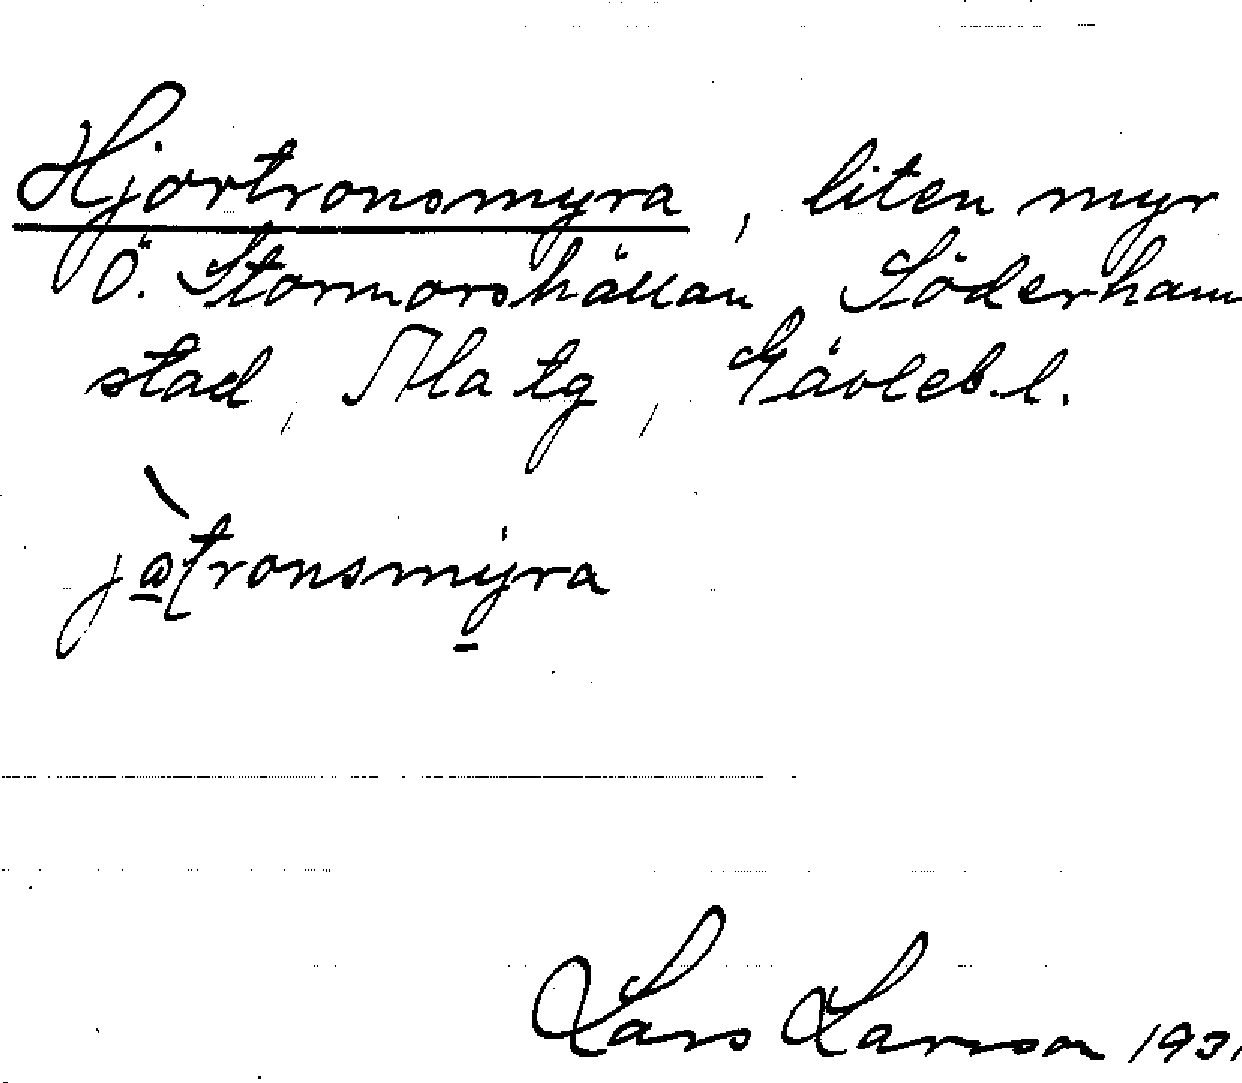 Hjortronsmyra, liten myr
Ö. Stormorshällan, Söderham
stad, Ala tg, Gävleb. l.
jatronsmyra
Lars Larsson 193